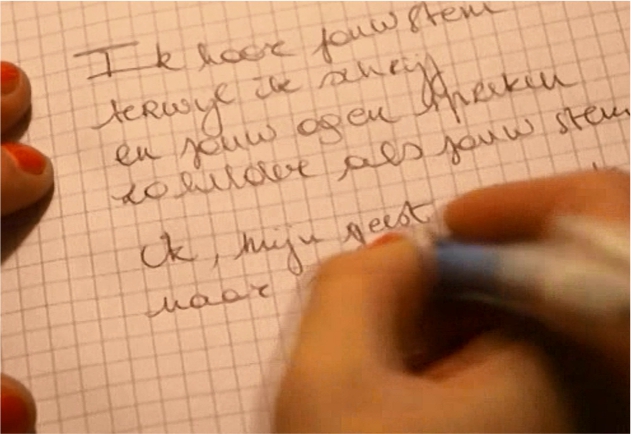 Ik hoor jouw stem
terwijl ik schrijf
en jouw ogen spreken
zo helder als jouw stem
Ok, mijn geest
naar